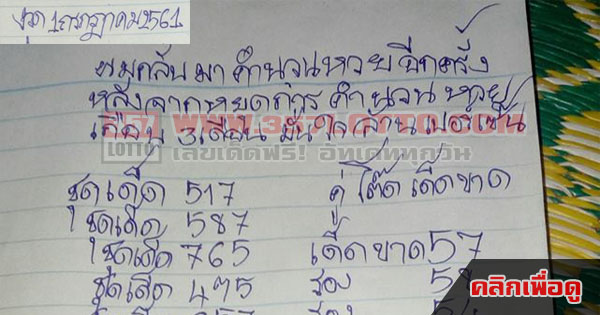 งวด 1 กรกฎาคม 2561
ผมกลับมาคำนวนหวยอีกครั้ง
หลังจากหยุดการคำนวนหวย
เกือบ 3 เดือน มั่นใจล้านเปอร์เซ็น
เลขเด็ดฟรี! อัพเดททุกวัน
ชุดเด็ด 517
คู่โต๊ด เด็ดขาด
ชุดเด็ด 587
ชุดเด็ด 765
เด็ดขาด 57
ชุดเด็ด 475
รอง
คลิกเพื่อดู